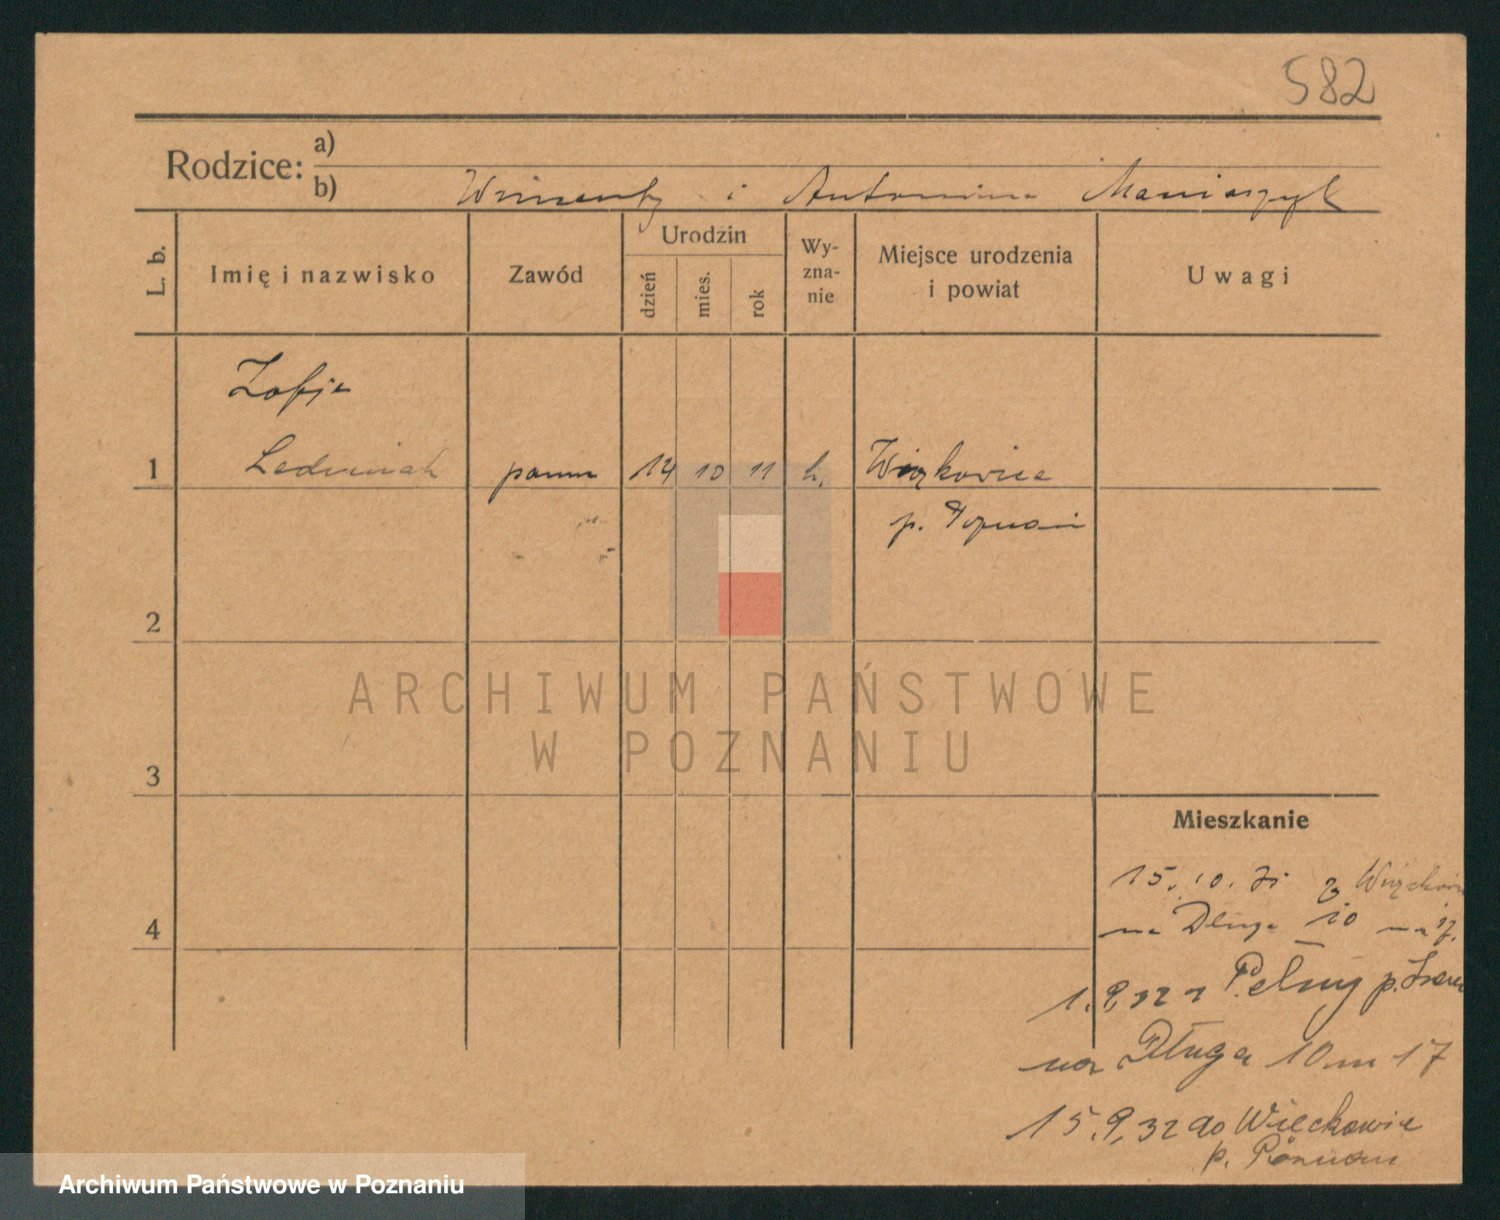 582
Rodzice: a)
b) Wincenty i Antonina
L. b. Imię i nazwisko Zawód Urodzin dzień mies. rok Wy-zna-nie Miejsce urodzenia i powiat Uwagi
Zofja
1 panna 14 10 11
p. Poznań
2
ARCHIWUM PAŃSTWOWE
W POZNANIU
3
Mieszkanie
15.10.31 z
4 na Długa 10
1.9.32 z p.
na Długa 10 m 17
15.9.32 do Więckowic
p. Poznań
Archiwum Państwowe w Poznaniu